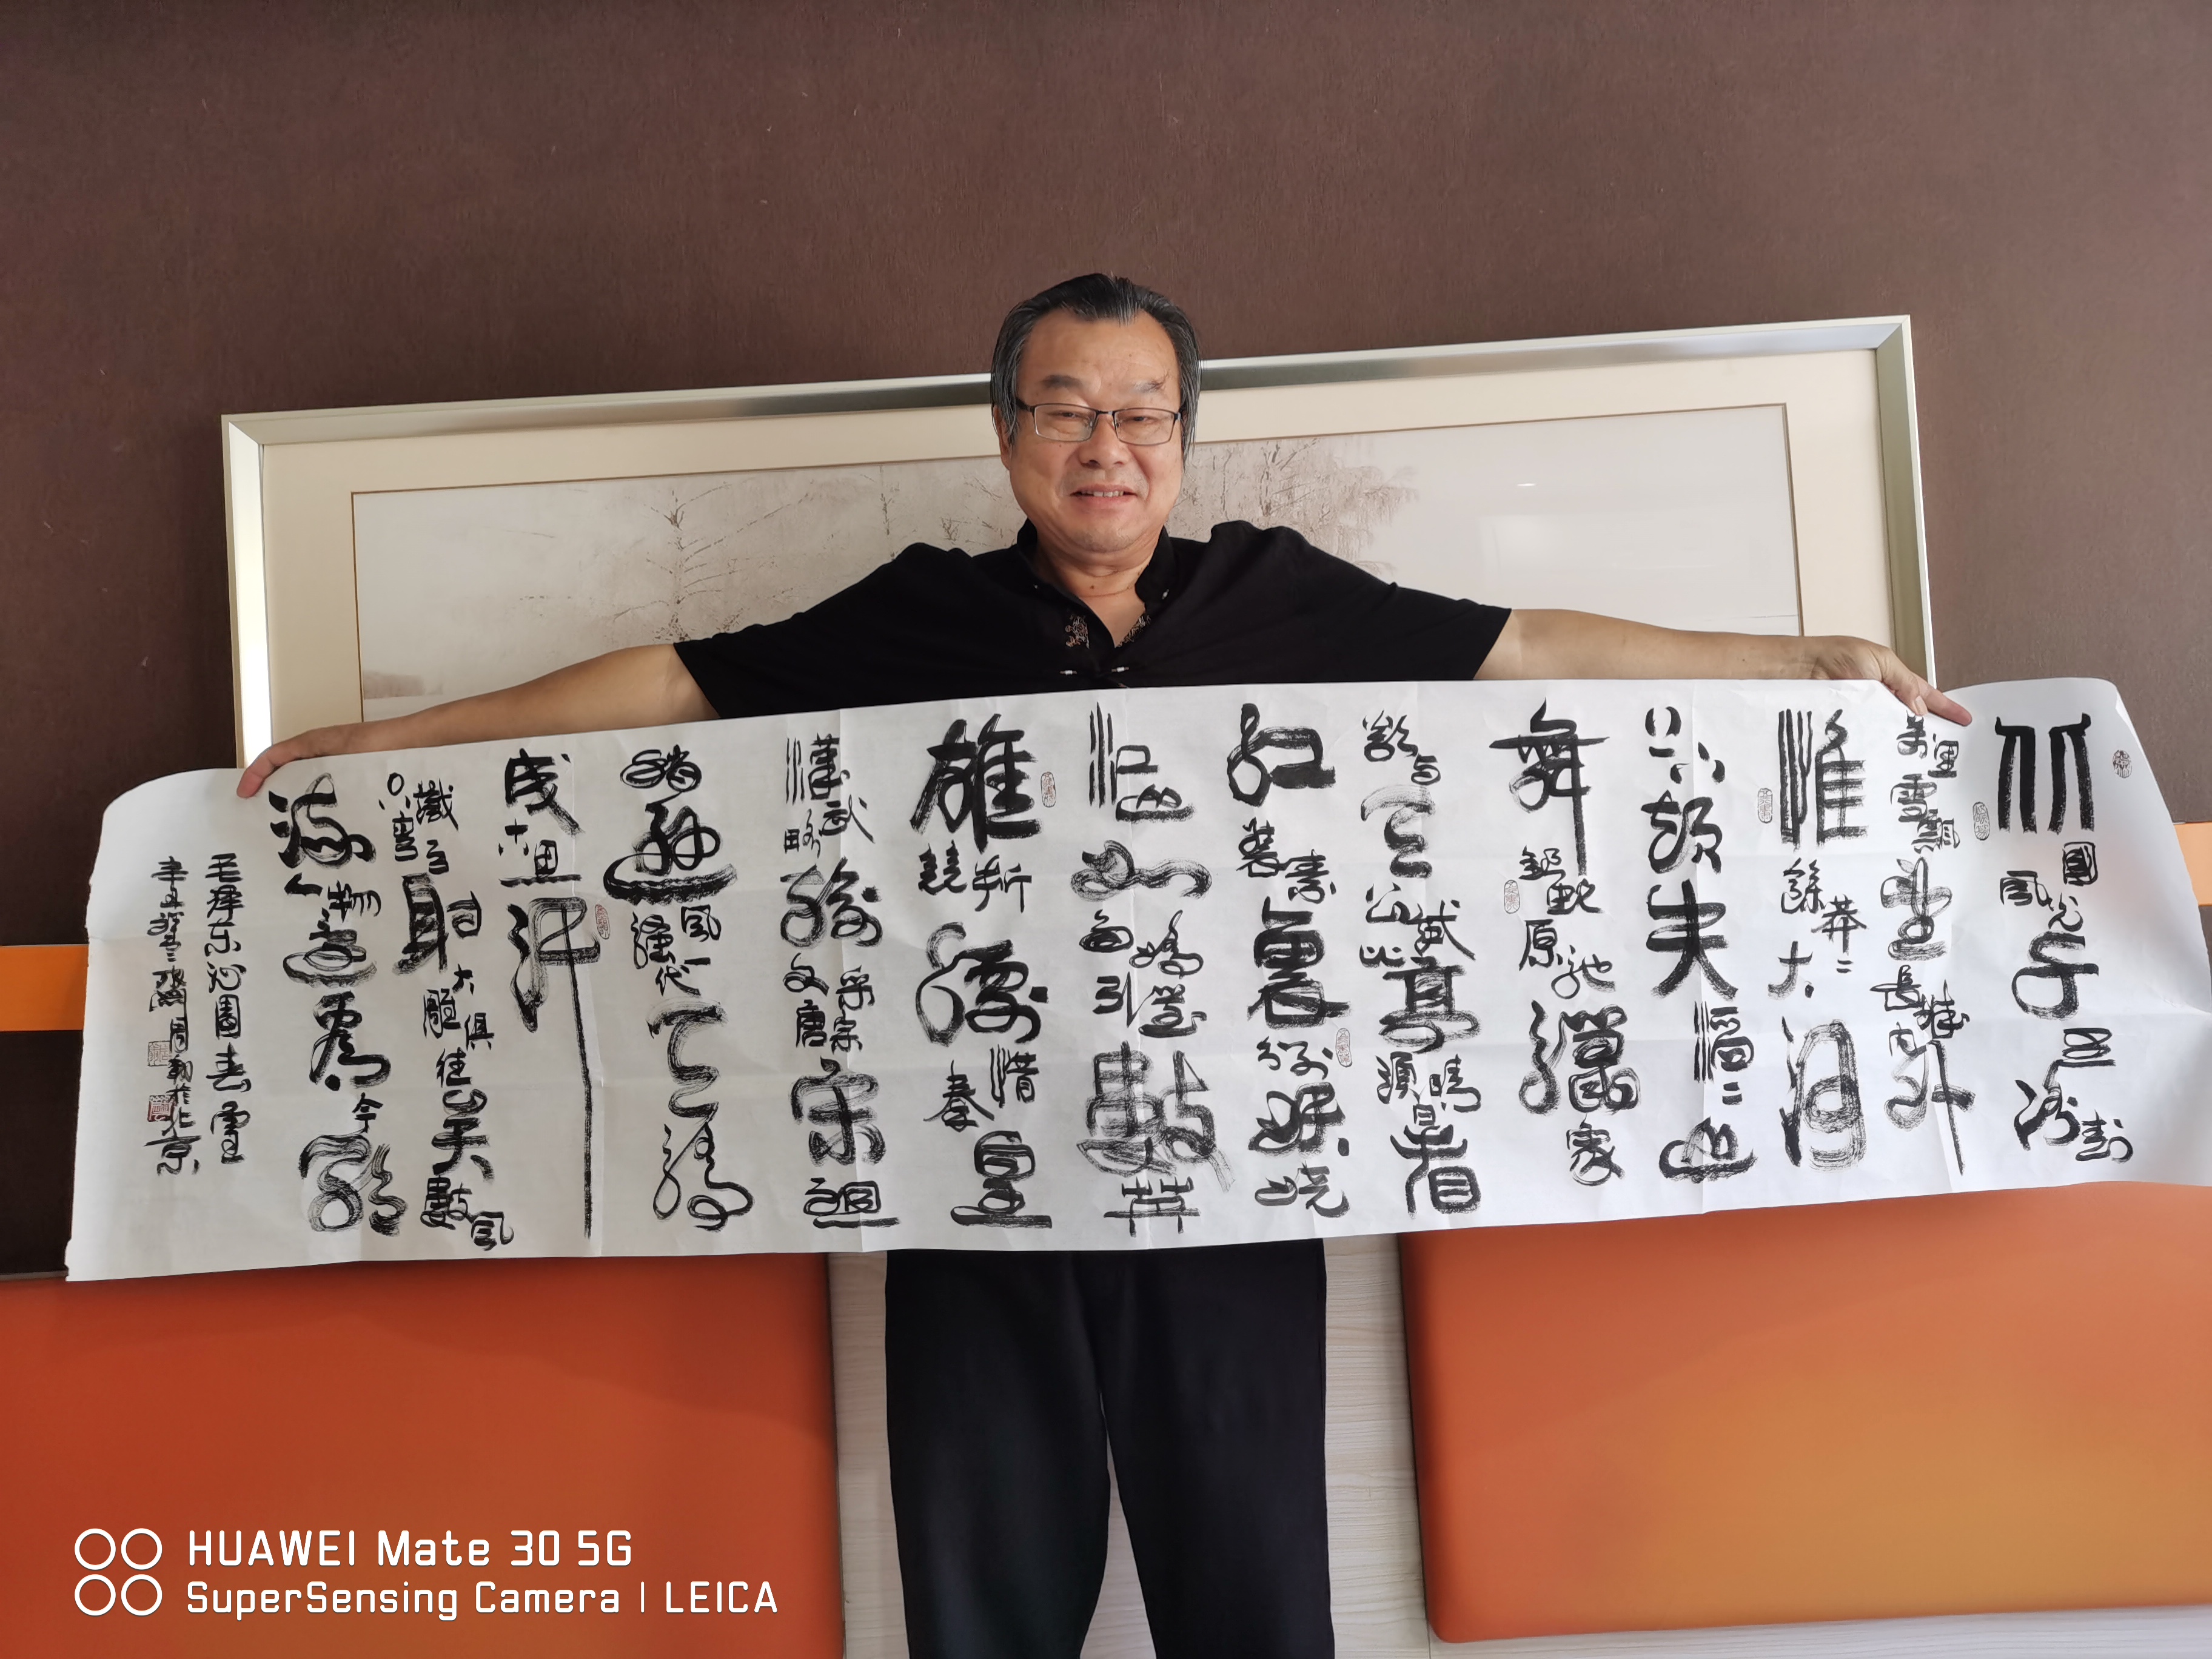 北國風光千里冰封
萬里雪飄望長城內外
惟餘莽二大河
上下頓失滔二山
舞銀蛇原馳蠟象
欲與天公試比高須晴日看
紅裝素裹分外妖嬈
江山如此多嬌引無數英
雄競折腰惜秦皇
漢武略輸文采唐宗宋祖
稍遜風騷一代天驕
成吉思汗
只識彎弓射大雕俱往矣數風
流人物還看今朝
毛澤东沁園春雪
辛丑
周
於北京
HUAWEI Mate 30 5G
SuperSensing Camera | LEICA